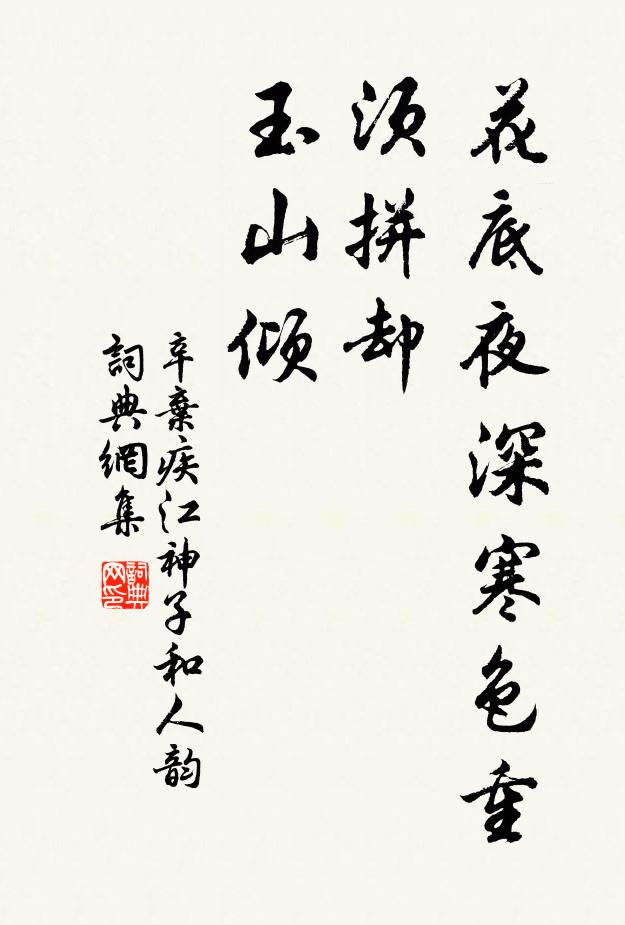 花底夜深寒色重
須拼却
玉山傾
辛棄疾江神子和人韵
詞典網集
詞典网印